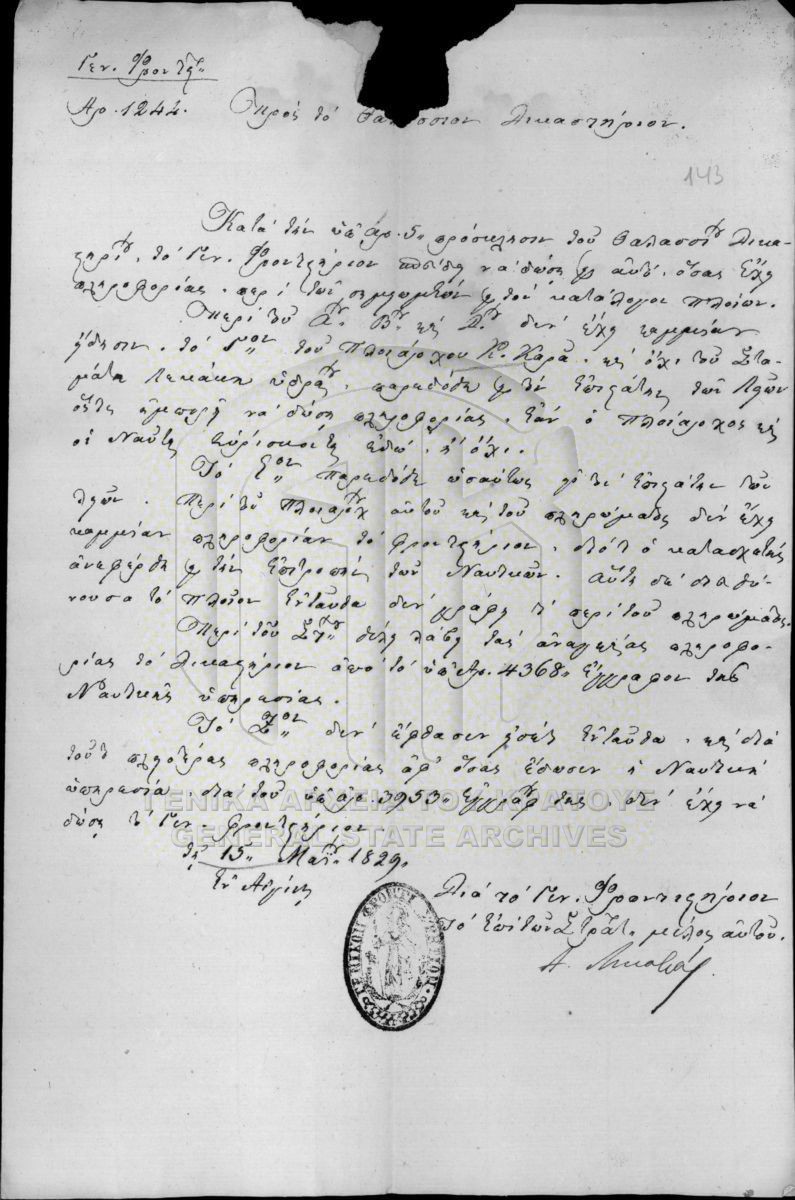 Γεν. Φροντιστ.
Αρ. 1244. Πρὸς τὸ Θαλάσσιον Δικαστήριον.
143
Κατὰ τὴν ὑπ' Αρ. 5 πρόσκλησιν τοῦ Θαλασσίου Δικα-
στηρίου, τὸ Γεν. Φροντιστήριον νὰ δώση εἰς αὐτὸ ὅσας ἔχη
πληροφορίας περὶ τῶν σημειωμένων εἰς τὸν κατάλογον πλοίων.
Περὶ τοῦ Α. Β. καὶ Δ. δὲν ἔχη καμμίαν
εἴδησιν. τὸ Γ.ον τοῦ Πλοιάρχου Κ. Καρᾶ, καὶ ὄχι τοῦ Στα-
μάτη Λεκάκη ὑδρ. παρεδόθη εἰς τὸν Ἐπιστάτην τῶν
ὅστις ἠμπορῆ νὰ δώση πληροφορίας, ἐὰν ὁ Πλοίαρχος καὶ
οἱ Ναῦται εὑρίσκονται ἐδῶ, ἢ ὄχι.
Τὸ Ε.ον παρεδόθη ὡσαύτως εἰς τὸν Ἐπιστάτην τῶν
Περὶ τοῦ Πλοιάρχ. αὐτοῦ καὶ τοῦ πληρώματος δὲν ἔχη
καμμίαν πληροφορίαν τὸ Φροντιστήριον, διότι ὁ
ἀνεφέρθη εἰς τὴν Ἐπιτροπὴν τῶν Ναυτικῶν. Αὕτη δὲ διευθύ-
νουσα τὸ πλοῖον ἐνταῦθα δὲν γράφη τὶ περὶ τοῦ πληρώματος.
Περὶ τοῦ ΣΤ. θέλη λάβη τὰς ἀναγκαίας πληροφο-
ρίας τὸ Δικαστήριον ἀπὸ τὸ ὑπ' Αρ. 4368 ἔγγραφον τῆς
Ναυτικῆς ὑπηρεσίας.
Τὸ Ζ.ον δὲν ἔφθασεν εἰσέτι ἐνταῦθα, καὶ διὰ
τοῦτο πληροτέρας πληροφορίας ἀφ' ὅσας ἔδωσεν ἡ Ναυτικὴ
ὑπηρεσία διὰ τοῦ ὑπ' αρ. 3953 ἐγγράφ. της, δὲν ἔχη νὰ
δώση τὸ Γεν. Φροντιστήριον.
τῇ 15 Μαΐου 1829.
Ἐν Αἰγίνῃ
Διὰ τὸ Γεν. Φροντιστήριον
Τὸ ἐπὶ τῶν Στρατ. μέλος αὐτοῦ.
ΓΕΝΙΚΟΝ ΦΡΟΝΤΙΣΤΗΡΙΟΝ
ΓΕΝΙΚΑ ΑΡΧΕΙΑ ΤΟΥ ΚΡΑΤΟΥΣ
GENERAL STATE ARCHIVES